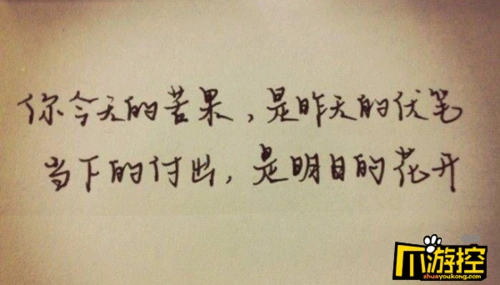 你今天的苦果，是昨天的伏笔
当下的付出，是明日的花开
爪游控
zhuayoukong.com